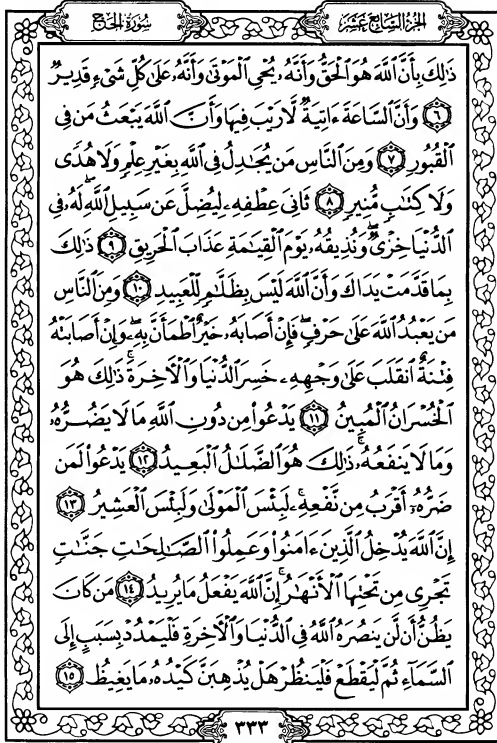 الجزء السابع عشر
سورة الحج
ذَٰلِكَ بِأَنَّ ٱللَّهَ هُوَ ٱلْحَقُّ وَأَنَّهُۥ يُحْىِ ٱلْمَوْتَىٰ وَأَنَّهُۥ عَلَىٰ كُلِّ شَىْءٍ قَدِيرٌ
٦ وَأَنَّ ٱلسَّاعَةَ ءَاتِيَةٌ لَّا رَيْبَ فِيهَا وَأَنَّ ٱللَّهَ يَبْعَثُ مَن فِى
ٱلْقُبُورِ ٧ وَمِنَ ٱلنَّاسِ مَن يُجَٰدِلُ فِى ٱللَّهِ بِغَيْرِ عِلْمٍ وَلَا هُدًى
وَلَا كِتَٰبٍ مُّنِيرٍ ٨ ثَانِىَ عِطْفِهِۦ لِيُضِلَّ عَن سَبِيلِ ٱللَّهِ ۖ لَهُۥ فِى
ٱلدُّنْيَا خِزْىٌ ۖ وَنُذِيقُهُۥ يَوْمَ ٱلْقِيَٰمَةِ عَذَابَ ٱلْحَرِيقِ ٩ ذَٰلِكَ
بِمَا قَدَّمَتْ يَدَاكَ وَأَنَّ ٱللَّهَ لَيْسَ بِظَلَّٰمٍ لِّلْعَبِيدِ ١٠ وَمِنَ ٱلنَّاسِ
مَن يَعْبُدُ ٱللَّهَ عَلَىٰ حَرْفٍ ۖ فَإِنْ أَصَابَهُۥ خَيْرٌ ٱطْمَأَنَّ بِهِۦ ۖ وَإِنْ أَصَابَتْهُ
فِتْنَةٌ ٱنقَلَبَ عَلَىٰ وَجْهِهِۦ خَسِرَ ٱلدُّنْيَا وَٱلْـَٔاخِرَةَ ۚ ذَٰلِكَ هُوَ
ٱلْخُسْرَانُ ٱلْمُبِينُ ١١ يَدْعُوا۟ مِن دُونِ ٱللَّهِ مَا لَا يَضُرُّهُۥ
وَمَا لَا يَنفَعُهُۥ ۚ ذَٰلِكَ هُوَ ٱلضَّلَٰلُ ٱلْبَعِيدُ ١٢ يَدْعُوا۟ لَمَن
ضَرُّهُۥٓ أَقْرَبُ مِن نَّفْعِهِۦ ۚ لَبِئْسَ ٱلْمَوْلَىٰ وَلَبِئْسَ ٱلْعَشِيرُ ١٣
إِنَّ ٱللَّهَ يُدْخِلُ ٱلَّذِينَ ءَامَنُوا۟ وَعَمِلُوا۟ ٱلصَّٰلِحَٰتِ جَنَّٰتٍ
تَجْرِى مِن تَحْتِهَا ٱلْأَنْهَٰرُ ۚ إِنَّ ٱللَّهَ يَفْعَلُ مَا يُرِيدُ ١٤ مَن كَانَ
يَظُنُّ أَن لَّن يَنصُرَهُ ٱللَّهُ فِى ٱلدُّنْيَا وَٱلْـَٔاخِرَةِ فَلْيَمْدُدْ بِسَبَبٍ إِلَى
ٱلسَّمَآءِ ثُمَّ لْيَقْطَعْ فَلْيَنظُرْ هَلْ يُذْهِبَنَّ كَيْدُهُۥ مَا يَغِيظُ ١٥
٣٣٣